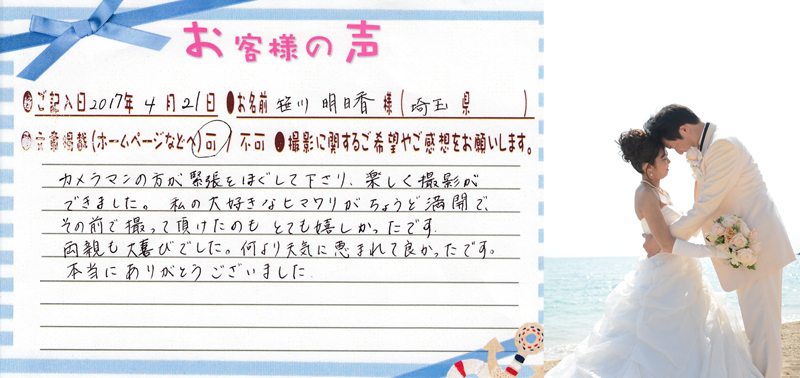 お客様の声
ご記入日2017年4月21日 ●お名前 笹川 明日香 様(埼玉 県 )
文章掲載(ホームページなどへ)可/不可 ●撮影に関するご希望やご感想をお願いします。
カメラマンの方が緊張をほぐして下さり、楽しく撮影が
できました。私の大好きなヒマワリがちょうど満開で、
その前で撮って頂けたのもとても嬉しかったです.
両親も大喜びでした。何より天気に恵まれて良かったです。
本当にありがとうございました.